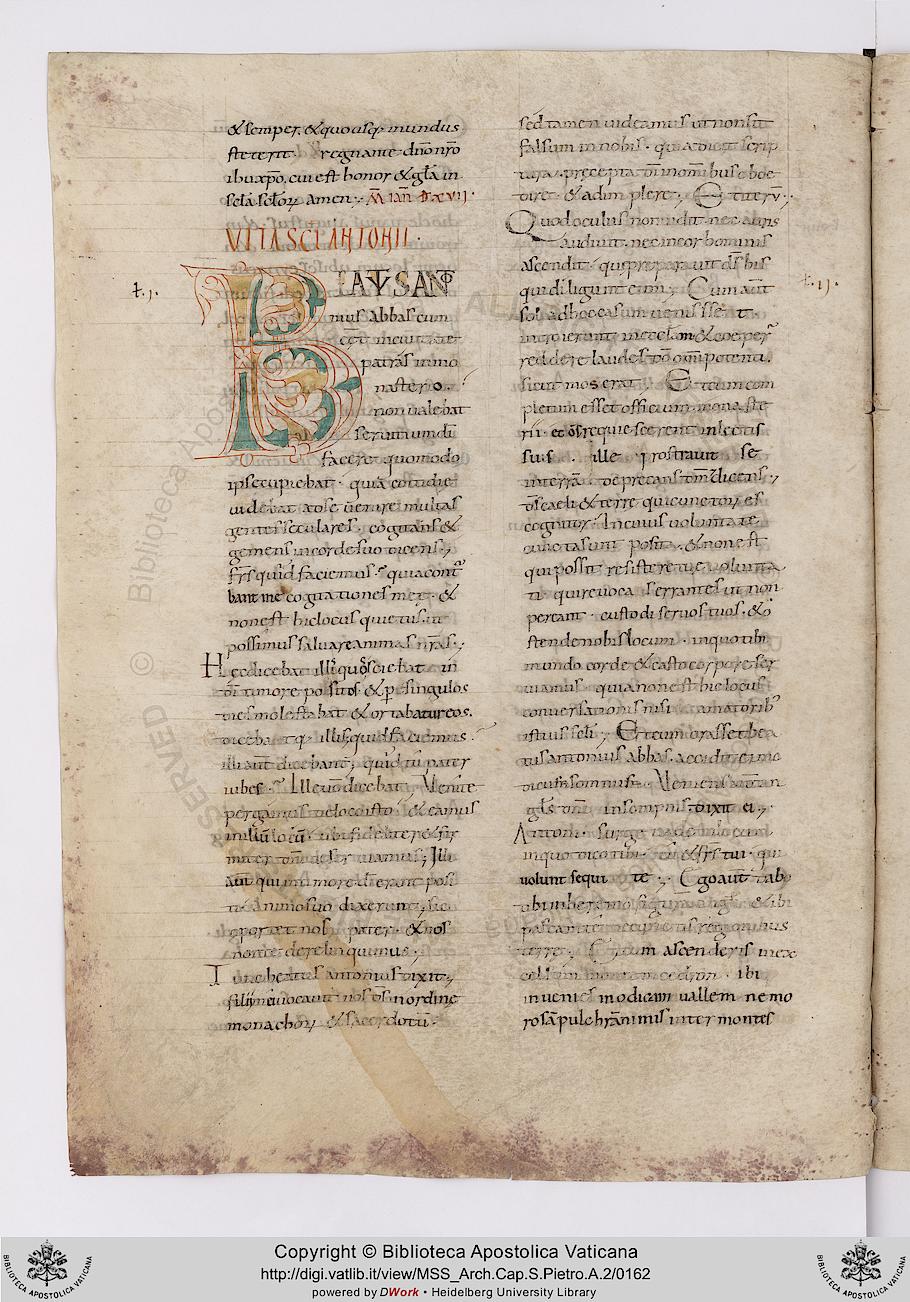 & semper, & quousq; mundus
steterit regnante dn̄o nr̄o
ihu xp̄o, cui est honor & gl̄a in
scl̄a scl̄or̄ amen
VITA SC̄I ANTONII
ł. i.
BEATUS ANTO
nius Abbas cum
patrās in mo
nasterio.
non ualebat
seruitium dī
facere quomodo
ipse cupiebat. quia cottidie
uidebat ad se uenire multas
gentes seculares. cogitans &
gemens in corde suo dicens;
fr̄s quid faciemus? quia cont
bant me cogitationes meę. &
non est hic locus quietus. ut
possimus saluare animas nr̄as;
Hec dicebat illis quos sciebat in
dī timore positos. & p̄ singulos
dies molestabat & ortabatur eos.
dicebatq; illis, quid faciemus.
illi aut̄ dicebant; quid tu pater
iubes? Ille uō dicebat, Uenite
pergamus de loco isto & eamus
in aliū locū. ubi fideliter & fir
miter dn̄o deseruiamus; Illi
aut̄ qui in timore dī erant posi
ti. Animo suo dixerunt, sic
oportet nos pater. & nos
non te derelinquimus;
Tunc beatus antonius dixit,
filii mei uocauit nos dS in ordine
monachor̄ & sacerdotū.
sed tamen uideamus ut non sit
falsum in nobis. quia dicit scrip
tura. precepta dī in omnibus oboe
dire. & adimplere; Et iterū;
Quod oculus non uidit. nec auris
audiuit. nec in cor hominis
ascendit. quę preparauit dS his
qui diligunt eum; Cum aut̄
ł. ii.
sol ad occasum uenisset.
introierunt in ecclam & coeper̄
reddere laudes dō omp̄otenti.
sicut mos erat. Et cum com
pletum esset officium. monaste
rii. et oS requiescerent in lectis
suis. ille prostrauit se
in terrā. deprecans dn̄m & dicens;
dS caeli & terre qui cunctor̄ es
cognitor. In cuius uoluntate
cuncta sunt posita. & non est
qui possit resistere tuę uolunta
ti. qui reuocas errantes ut non
pereant. custodi seruos tuos. & o
stende nobis locum. in quo tibi
mundo corde & casto corpore ser
uiamus. quia non est hic locus
conuersationis nisi amatorib;
istius scl̄i; Et cum orasset bea
tus antonius abbas. accidit eum
Ueniens aut̄
angl̄s dn̄i in sompnis dixit ei;
Antoni. surge uade in locum
in quo dico tibi. tu & fr̄s tui. qui
uolunt sequi te; Ego aut̄ dabo
tibi in heremo & ibi
regionibus
terre. Et cum ascenderis in ex
celsum montem edron. ibi
inuenies modicam uallem nemo
rosā pulchrā nimis inter montes
Copyright © Biblioteca Apostolica Vaticana
http://digi.vatlib.it/view/MSS_Arch.Cap.S.Pietro.A.2/0162
powered by DWork • Heidelberg University Library
BIBLIOTECA APOSTOLICA VATICANA
BIBLIOTECA APOSTOLICA VATICANA